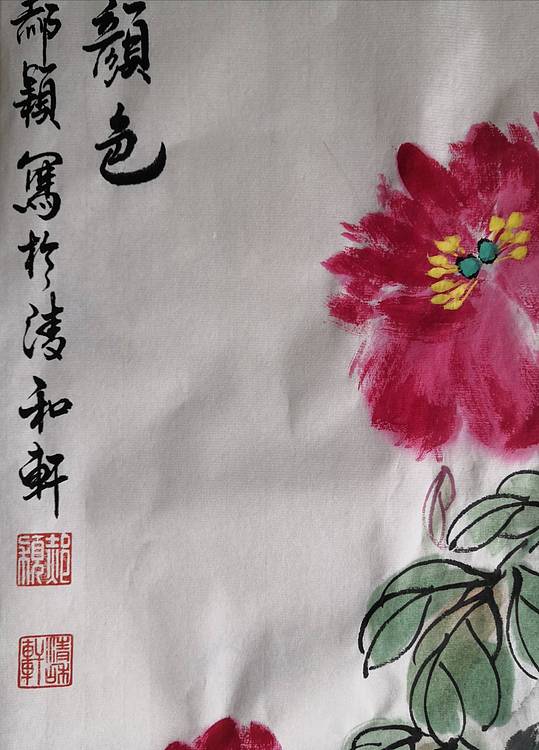 顏色
郝穎寫於清和軒
郝穎
清和軒